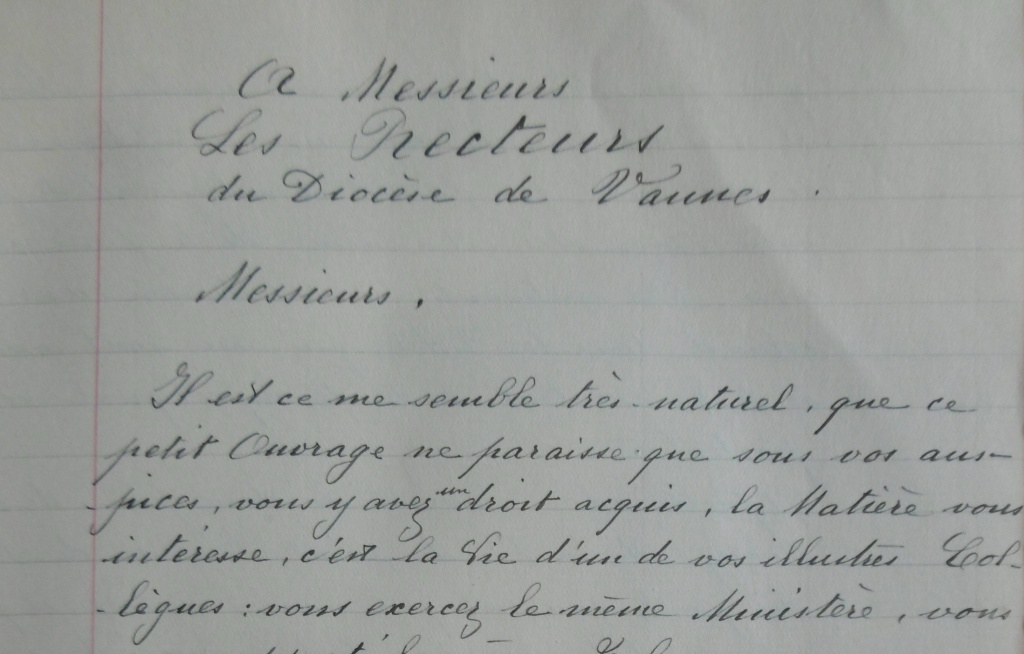 A Messieurs
Les Recteurs
du Diocèse de Vannes.
Messieurs,
Il est ce me semble très naturel, que ce
petit Ouvrage ne paraisse que sous vos aus-
-pices, vous y avez un droit acquis, la Matière vous
intéresse, c'est la Vie d'un de vos illustres Col-
-lègues : vous exercez le même Ministère, vous